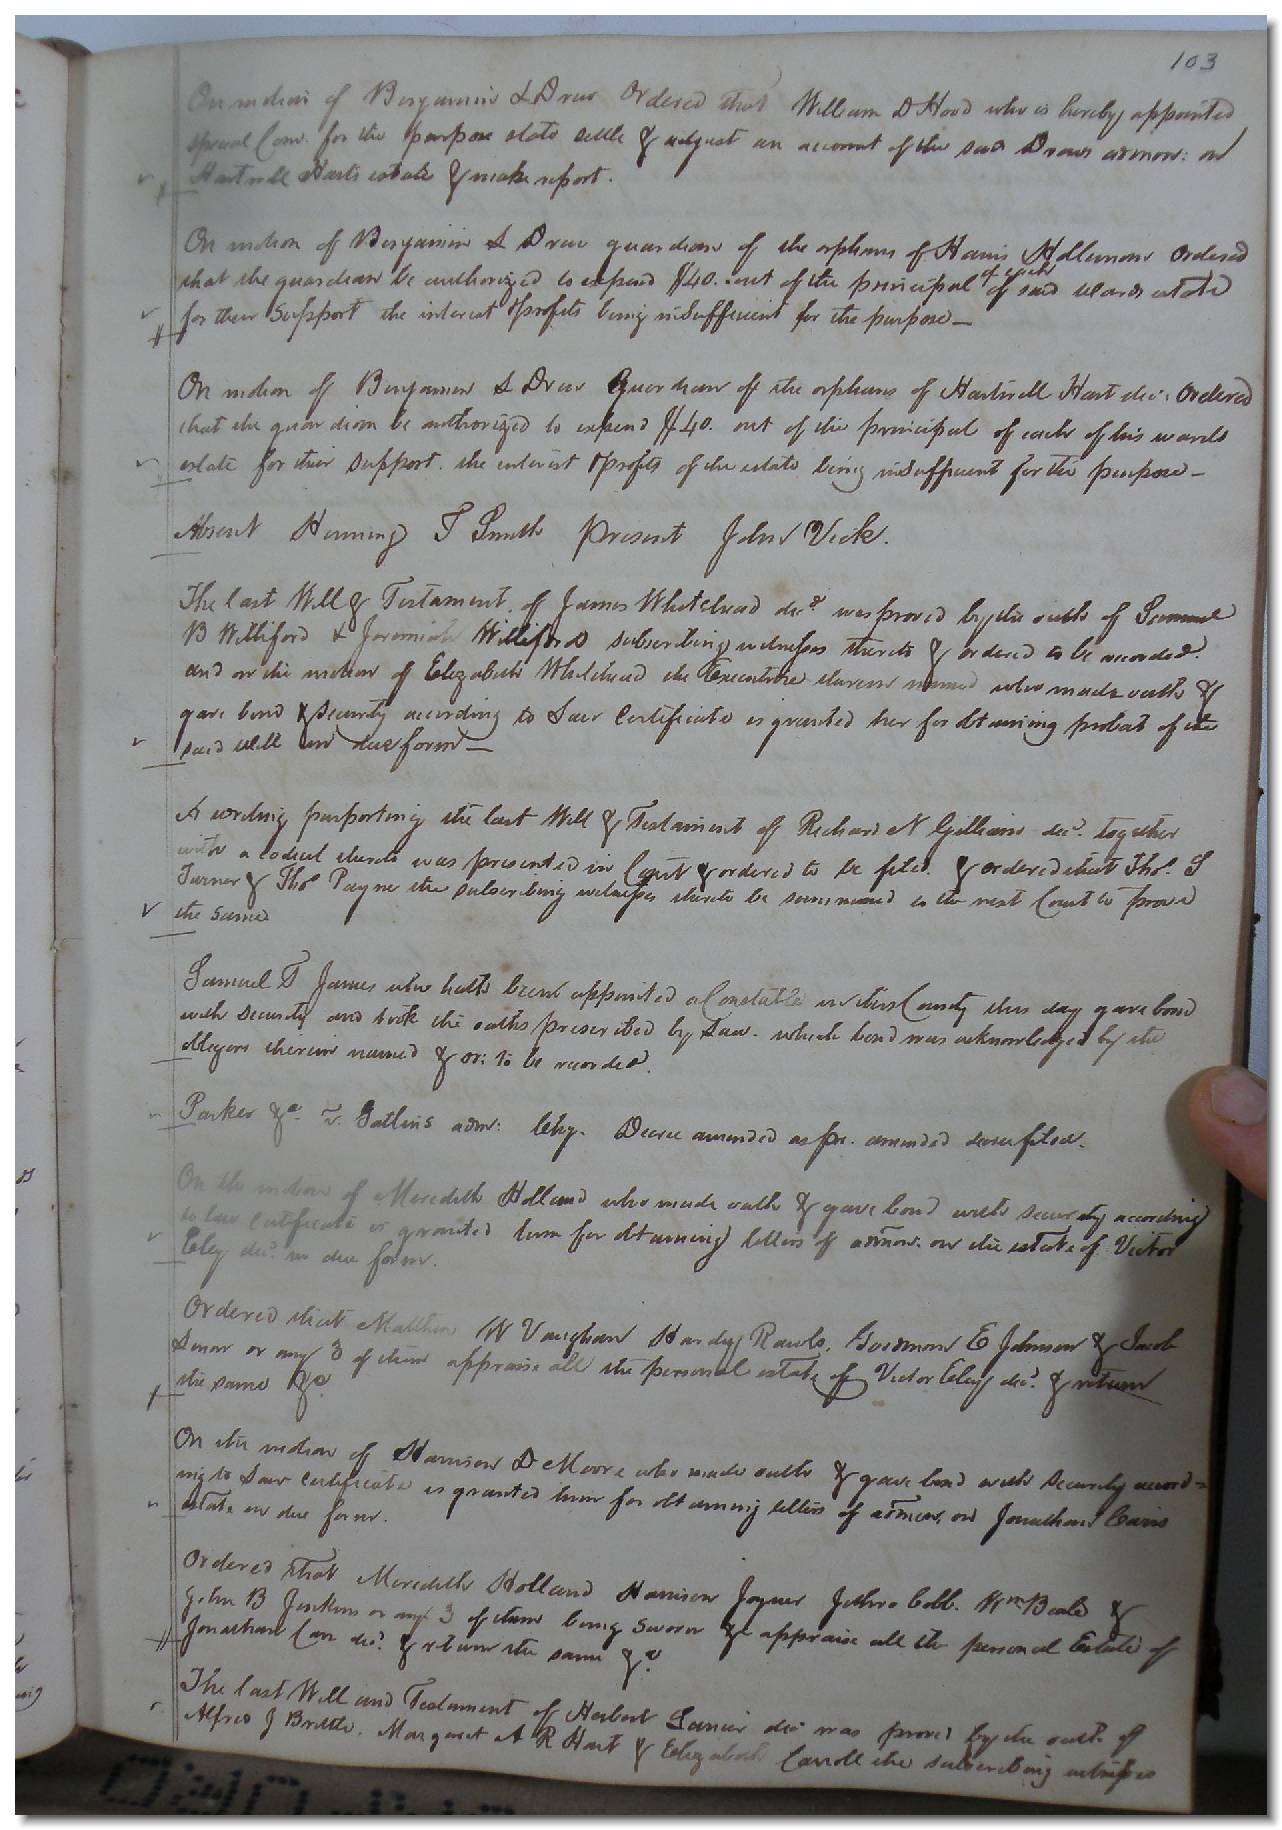 103
On motion of Benjamin L Drew Ordered that William D Hood who is hereby appointed
special Com. for the purpose state settle & adjust an account of the said Drews admon: on
Hartwell Harts estate & make report.
On motion of Benjamin L Drew guardian of the orphans of Hollemon Ordered
that the guardian be authorized to expend $40. out of the principal of each of said wards estate
for their Support the interest & profits being insufficient for the purpose—
On motion of Benjamin L Drew Guardian of the orphans of Hartwell Hart dec: Ordered
that the guardian be authorized to expend $40. out of the principal of each of his wards
estate for their support. the interest & profits of the estate being insufficient for the purpose—
Absent Henning T Smith Present John Vick.
The last Will & Testament of James Whitehead decd was proved by the oaths of Samuel
B Williford & Jeremiah Williford subscribing witnesses thereto & ordered to be recorded.
and on the motion of Elizabeth Whitehead the Executrix therein named who made oath &
gave bond & security according to Law Certificate is granted her for obtaining probat of the
said will in due form—
A writing purporting the last Will & Testament of Richard N Gilliam decd. together
with a codicil thereto was presented in Court & ordered to be filed. & ordered that Thos. S
Turner & Thos Payne the subscribing witnesses thereto be summoned to the next Court to prove
the same
Samuel T James who hath been appointed a Constable in this County this day gave bond
with security and took the oaths prescribed by Law. which bond was acknowledged by the
obligors therein named & or: to be recorded.
Parker &c. v. Gatlins admr: Chy. Decree amended as pr. amended decree filed.
On the motion of Meredith Holland who made oath & gave bond with security according
to law Certificate is granted him for obtaining letters of admon. on the estate of Victor
Eley decd. in due form.
Ordered that Matthew W Vaughan Hardy Rawls, E Johnson & Jacob
or any 3 of them appraise all the personal estate of Victor Eley decd. & return
the same &c
On the motion of Harrison D Moore who made oath & gave bond with security accord=
ing to Law Certificate is granted him for obtaining letters of admon, on Jonathan
estate in due form.
Ordered that Meredith Holland Harrison Joyner Jethro Cobb. Wm Beale &
John B Jenkins or any 3 of them being sworn &c appraise all the personal Estate of
Jonathan decd. & return the same &c
The last Will and Testament of Herbert Lanier decd was proved by the oath of
Alfred J Brittle. Margaret A R Hart & Elizabeth Carroll the subscribing witnesses